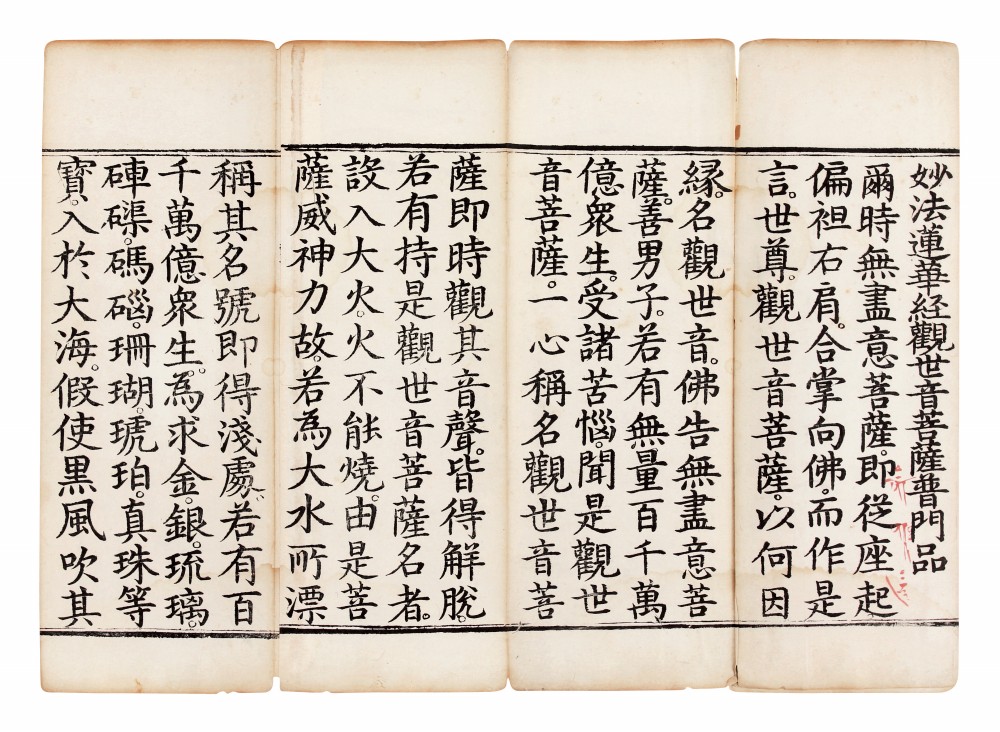 妙法蓮華経觀世音菩薩普門品
爾時無盡意菩薩。即從座起
偏袒右肩。合掌向佛。而作是
言。世尊。觀世音菩薩。以何因
縁。名觀世音。佛告無盡意菩
薩。善男子。若有無量百千萬
億衆生。受諸苦惱。聞是觀世
音菩薩。一心稱名觀世音菩
薩即時觀其音聲。皆得解脫。
若有持是觀世音菩薩名者。
設入大火。火不能燒。由是菩
薩威神力故。若為大水所漂
稱其名號即得淺處。若有百
千萬億衆生。為求金。銀。琉璃。
硨磲。碼碯。珊瑚。琥珀。真珠等
寶。入於大海。假使黒風吹其